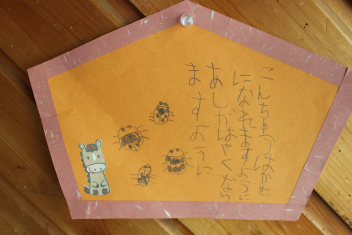 こんちゅうはかせ
になれますように
あしがはやくなり
ますように